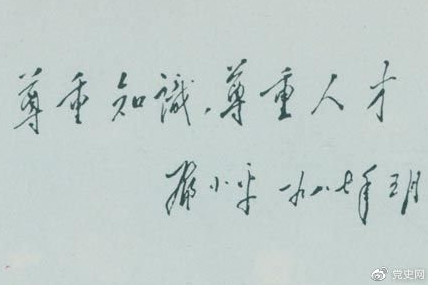 尊重知識、尊重人才
鄧小平 一九八七年三月
党史网